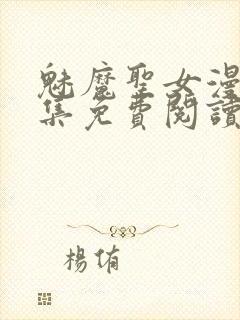 魅魔聖女漫
集免費閱讀
楊侑